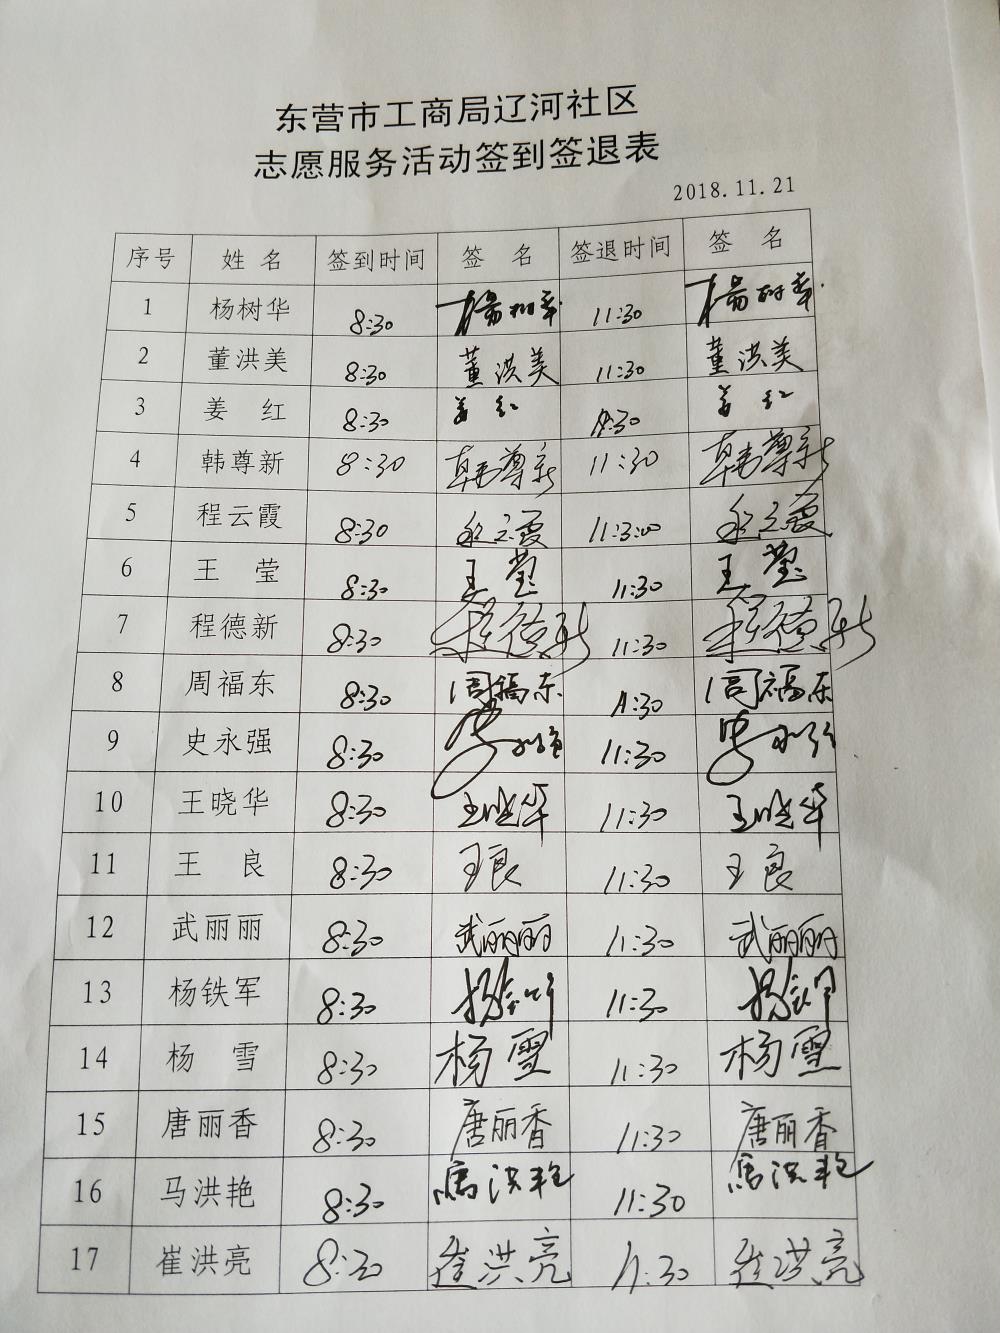 东营市工商局辽河社区
志愿服务活动签到签退表
2018.11.21
序号 姓名 签到时间 签 名 签退时间 签 名
1 杨树华 8:30 杨树华 11:30 杨树华
2 董洪美 8:30 董洪美 11:30 董洪美
3 姜 红 8:30 姜红 11:30 姜红
4 韩尊新 8:30 韩尊新 11:30 韩尊新
5 程云霞 8:30 程云霞 11:3:00 程云霞
6 王 莹 8:30 王莹 11:30 王莹
7 程德新 8:30 程德新 11:30 程德新
8 周福东 8:30 周福东 11:30 周福东
9 史永强 8:30 史永强 11:30 史永强
10 王晓华 8:30 王晓华 11:30 王晓华
11 王 良 8:30 王良 11:30 王良
12 武丽丽 8:30 武丽丽 11:30 武丽丽
13 杨铁军 8:30 杨铁军 11:30 杨铁军
14 杨 雪 8:30 杨雪 11:30 杨雪
15 唐丽香 8:30 唐丽香 11:30 唐丽香
16 马洪艳 8:30 马洪艳 11:30 马洪艳
17 崔洪亮 8:30 崔洪亮 11:30 崔洪亮